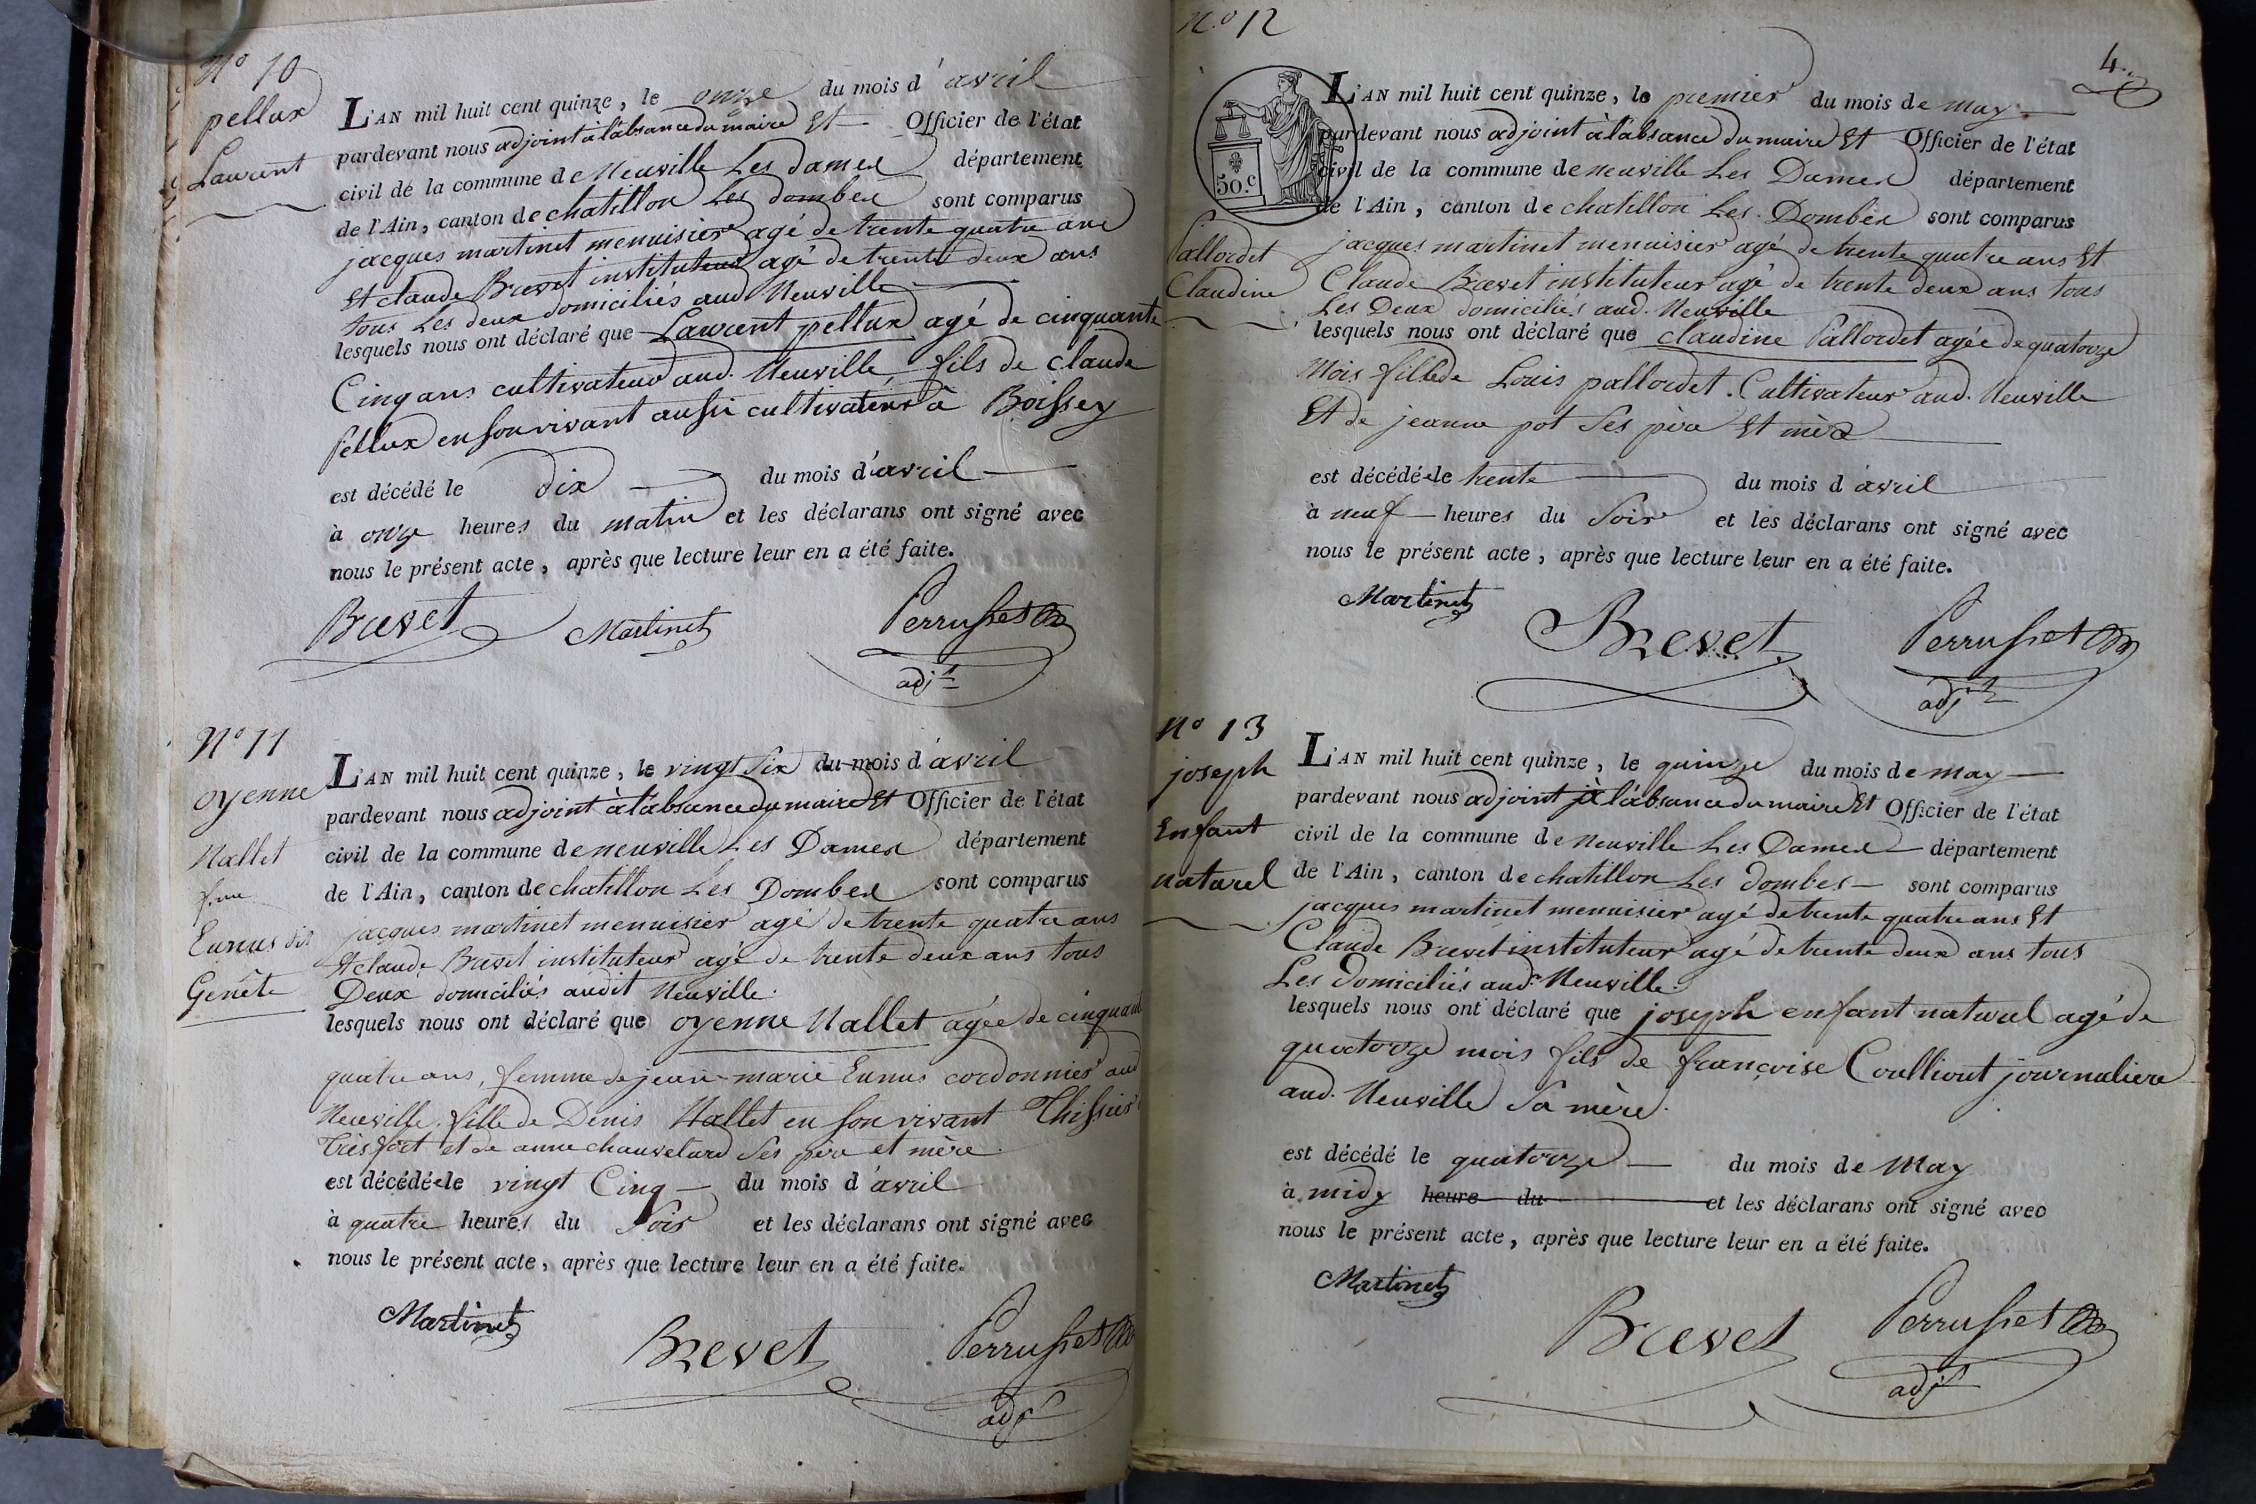 N.o 10
pellux
Laurent
L'AN mil huit cent quinze, le onze du mois d'avril
pardevant nous adjoint à l'absance du maire Et Officier de l'état
civil de la commune de Neuville Les Dames département
de l'Ain, canton de chatillon Les dombes sont comparus
jacques martinet menuisier agé de trente quatre ans
Et claude Brevet instituteur agé de trente deux ans
tous Les deux domiciliés aud Neuville
lesquels nous ont déclaré que Laurent pellux agé de cinquante
Cinq ans cultivateur aud. Neuville fils de claude
Pellux en son vivant aussi cultivateur à Boissey
est décédé le dix du mois d'avril
à onze heures du matin et les déclarans ont signé avec
nous le présent acte, après que lecture leur en a été faite.
Brevet Martinet Perrusset
adjt
N.o 11
oyenne
Nallet
fme
Eunus dit
Genête
L'AN mil huit cent quinze, le vingt Six du mois d'avril
pardevant nous adjoint à l'absance du maire Et Officier de l'état
civil de la commune de neuville Les Dames département
de l'Ain, canton de chatillon Les Dombes sont comparus
jacques martinet menuisier agé de trente quatre ans
Et claude Brevet instituteur agé de trente deux ans tous
Deux domiciliés audit Neuville.
lesquels nous ont déclaré que oyenne Nallet agée de cinquant
quatre ans, femme de jean-marie Eunus cordonnier aud
Neuville. fille de Denis Nallet en son vivant Thissier
Trèsfort et de anne chauvelard Ses père et mère.
est décédée le vingt Cinq du mois d'avril
à quatre heures du Soir et les déclarans ont signé avec
nous le présent acte, après que lecture leur en a été faite.
Martinet
Brevet Perrusset
adjt
N.o 12
4.
50.c
Pallordet
Claudine
L'AN mil huit cent quinze, le premier du mois de may
pardevant nous adjoint à l'absance du maire Et Officier de l'état
civil de la commune de neuville Les Dames département
de l'Ain, canton de chatillon Les Dombes sont comparus
jacques martinet menuisier agé de trente quatre ans Et
Claude Brevet instituteur agé de trente deux ans tous
Les Deux domiciliés aud. Neuville
lesquels nous ont déclaré que claudine Pallordet agée de quatorze
Mois fille de Louis pallordet. Cultivateur aud. Neuville
Et de jeanne pot Ses père Et mère
est décédée le trente du mois d'avril
à neuf heures du Soir et les déclarans ont signé avec
nous le présent acte, après que lecture leur en a été faite.
Martinet
Brevet Perrusset
adjt
N.o 13
joseph
Enfant
naturel
L'AN mil huit cent quinze, le quinze du mois de may
pardevant nous adjoint à l'absance du maire Et Officier de l'état
civil de la commune de Neuville Les Dames département
de l'Ain, canton de chatillon Les dombes sont comparus
jacques martinet menuisier agé de trente quatre ans Et
Claude Brevet instituteur agé de trente deux ans tous
Les Domiciliés aud. Neuville.
lesquels nous ont déclaré que joseph enfant naturel agé de
quatorze mois fils de françoise Coulliout journaliere
aud. Neuville Sa mère.
est décédé le quatorze du mois de May
à midy heure du et les déclarans ont signé avec
nous le présent acte, après que lecture leur en a été faite.
Martinet
Brevet Perrusset
adjt